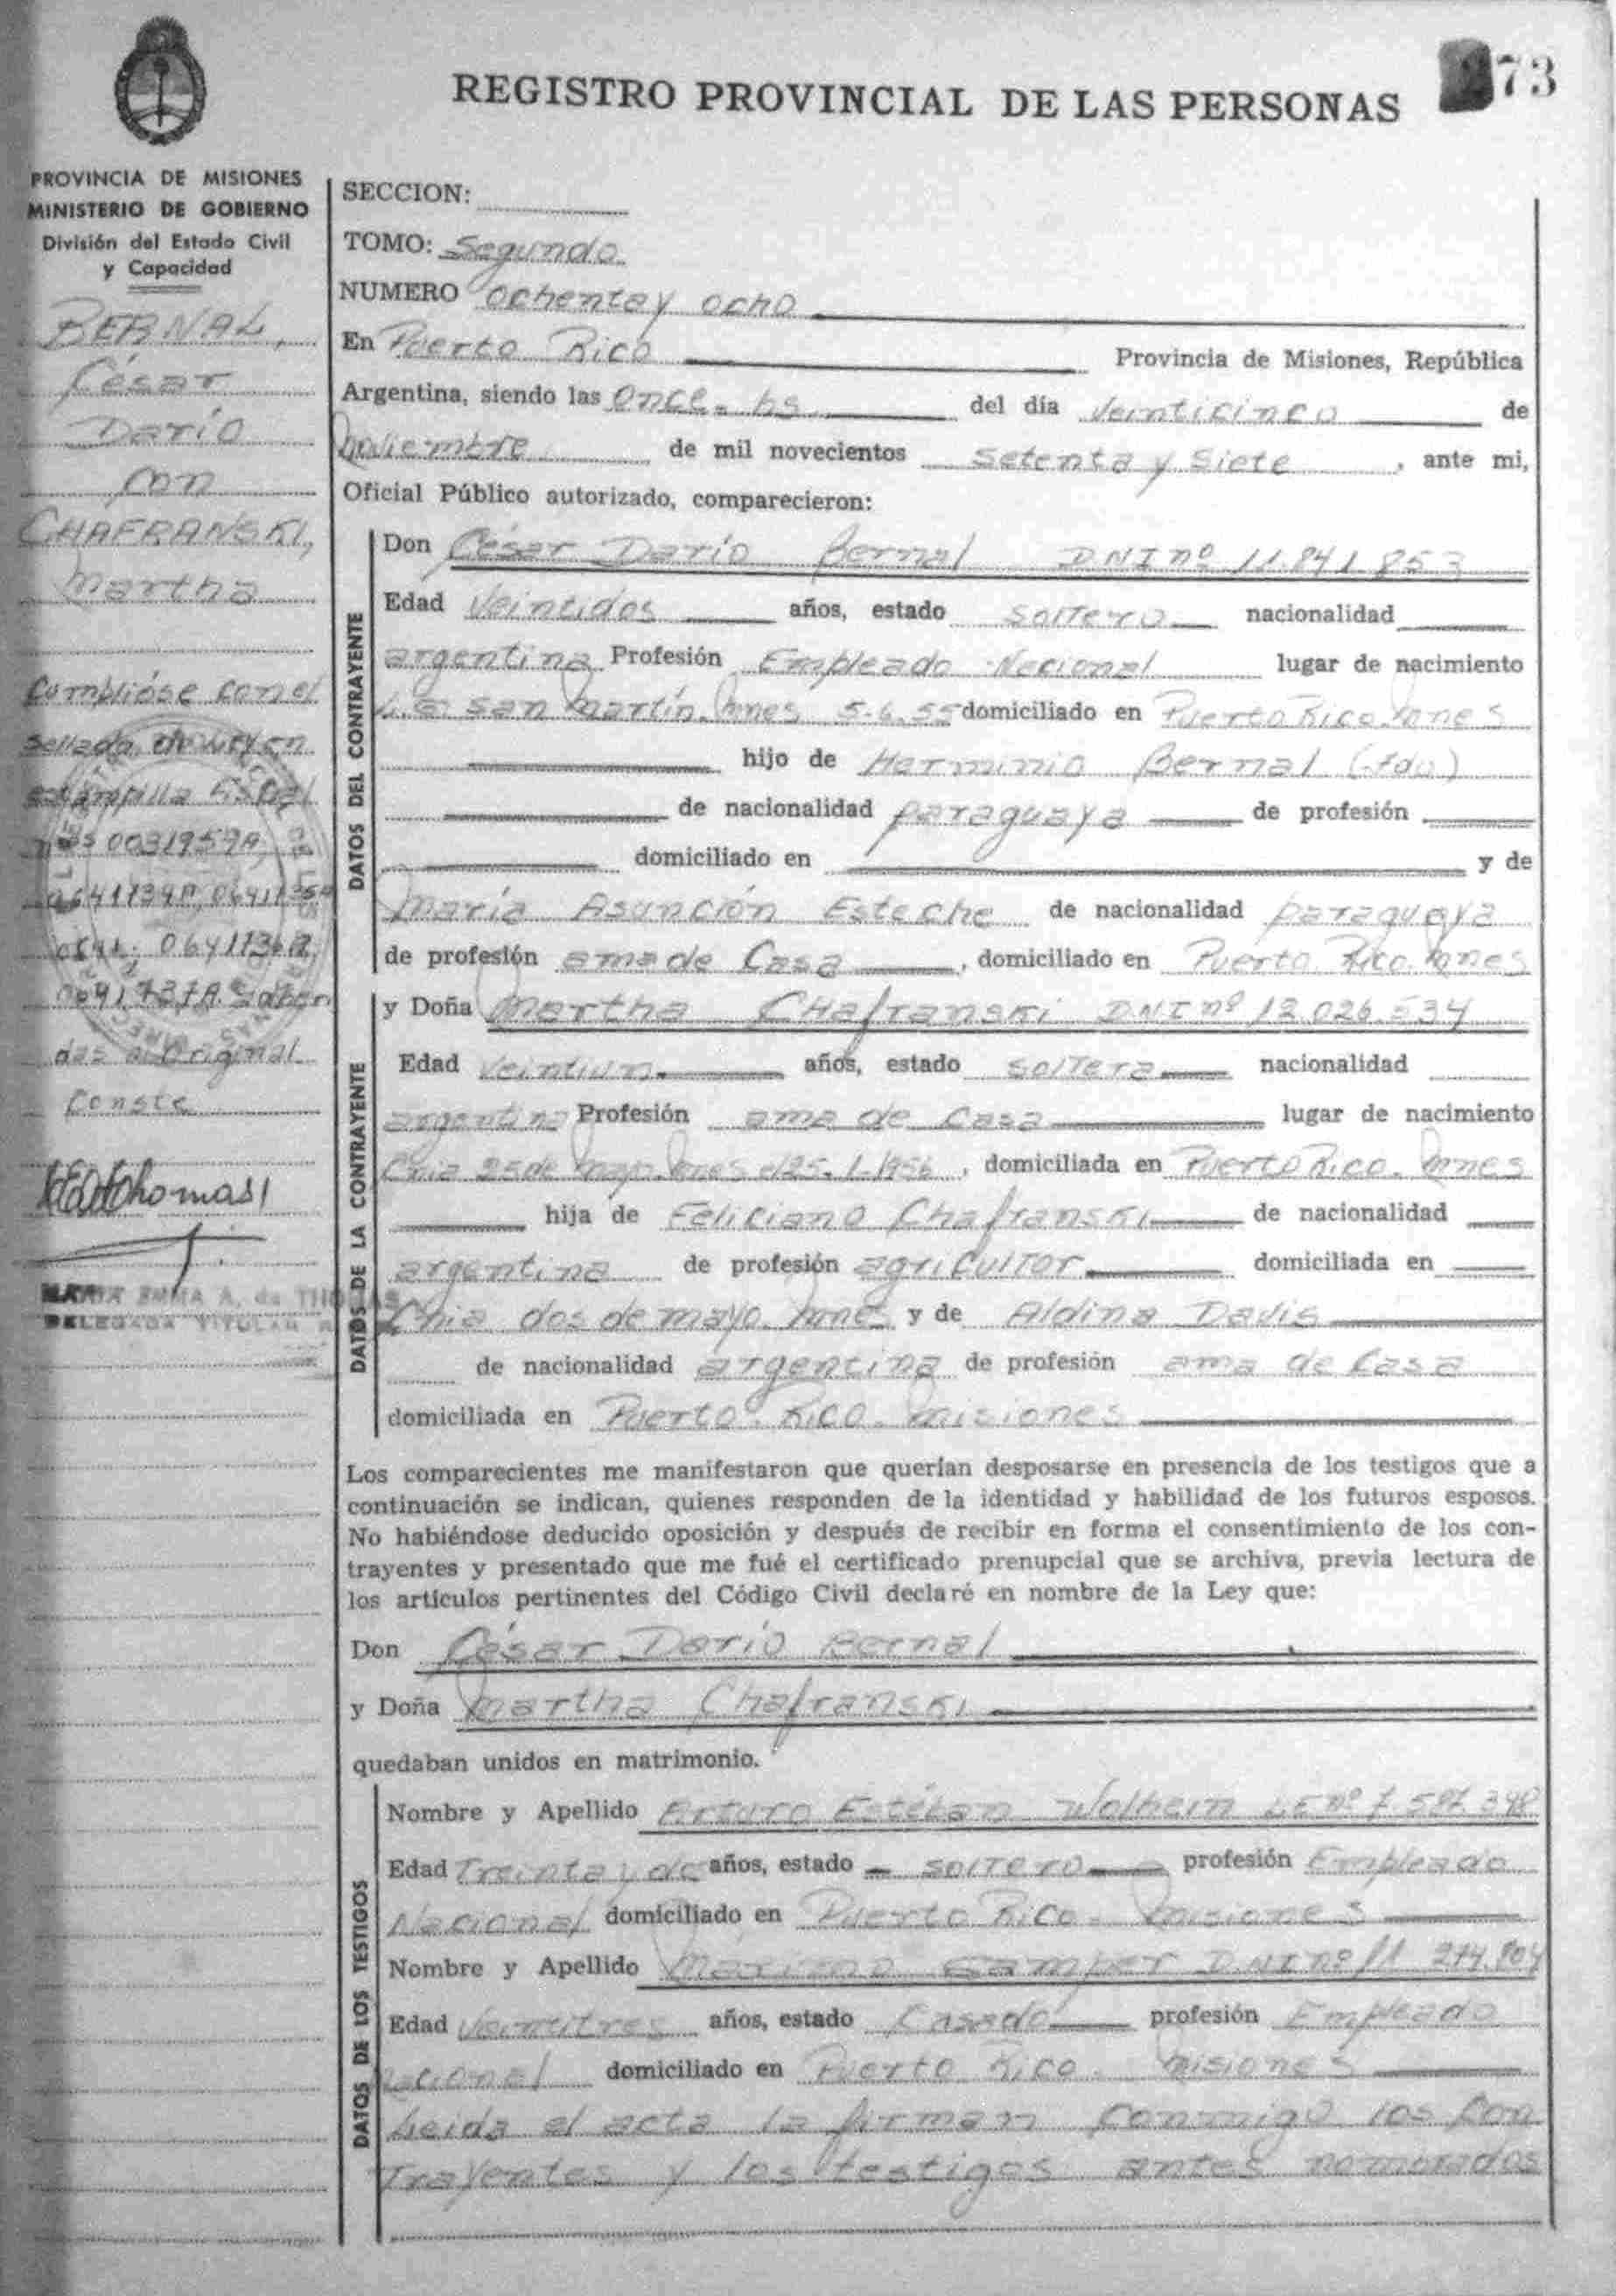 73
REGISTRO PROVINCIAL DE LAS PERSONAS
PROVINCIA DE MISIONES
MINISTERIO DE GOBIERNO
División del Estado Civil
y Capacidad
BERNAL,
César
Darío
con
CHAFRANSKI,
Martha
Cumplióse con el
sellado de Ley en
estampilla fiscal
0031959A,
0641134A, 0641135A
0641136A
0641137A
das al Original
Conste
DELEGADA TITULAR
SECCION:
TOMO: Segundo
NUMERO Ochenta y ocho
En Puerto Rico Provincia de Misiones, República
Argentina, siendo las Once hs del día Veinticinco de
Noviembre de mil novecientos Setenta y Siete, ante mi,
Oficial Público autorizado, comparecieron:
DATOS DEL CONTRAYENTE
Don César Darío Bernal DNI nº 11.841.853
Edad Veintidos años, estado soltero nacionalidad
argentina Profesión Empleado Nacional lugar de nacimiento
San Martín. Mnes 5-6-55 domiciliado en Puerto Rico. Mnes
hijo de Herminio Bernal (fdo)
de nacionalidad paraguaya de profesión
domiciliado en y de
María Asunción Esteche de nacionalidad paraguaya
de profesión ama de Casa, domiciliado en Puerto Rico. Mnes
DATOS DE LA CONTRAYENTE
y Doña Martha CHafranski DNI nº 12.026.534
Edad Veintiun años, estado soltera nacionalidad
argentina Profesión ama de Casa lugar de nacimiento
Cnia 25 de Mayo. Mnes el 25-1-1956, domiciliada en Puerto Rico. Mnes
hija de Feliciano Chafranski de nacionalidad
argentina de profesión agricultor domiciliada en
Cnia dos de mayo. Mnes y de Aldina Davis
de nacionalidad argentina de profesión ama de Casa
domiciliada en Puerto Rico. Misiones
Los comparecientes me manifestaron que querían desposarse en presencia de los testigos que a
continuación se indican, quienes responden de la identidad y habilidad de los futuros esposos.
No habiéndose deducido oposición y después de recibir en forma el consentimiento de los con-
trayentes y presentado que me fué el certificado prenupcial que se archiva, previa lectura de
los artículos pertinentes del Código Civil declaré en nombre de la Ley que:
Don César Darío Bernal
y Doña Martha Chafranski
quedaban unidos en matrimonio.
DATOS DE LOS TESTIGOS
Nombre y Apellido Arturo Estéban LE nº
Edad Treinta y dos años, estado soltero profesión Empleado
Nacional domiciliado en Puerto Rico. Misiones
Nombre y Apellido Gamper DNI nº 11.274.804
Edad Veintitres años, estado Casado profesión Empleado
Nacional domiciliado en Puerto Rico. Misiones
Leida el acta la firman conmigo los Con
Trayentes y los testigos antes nombrados